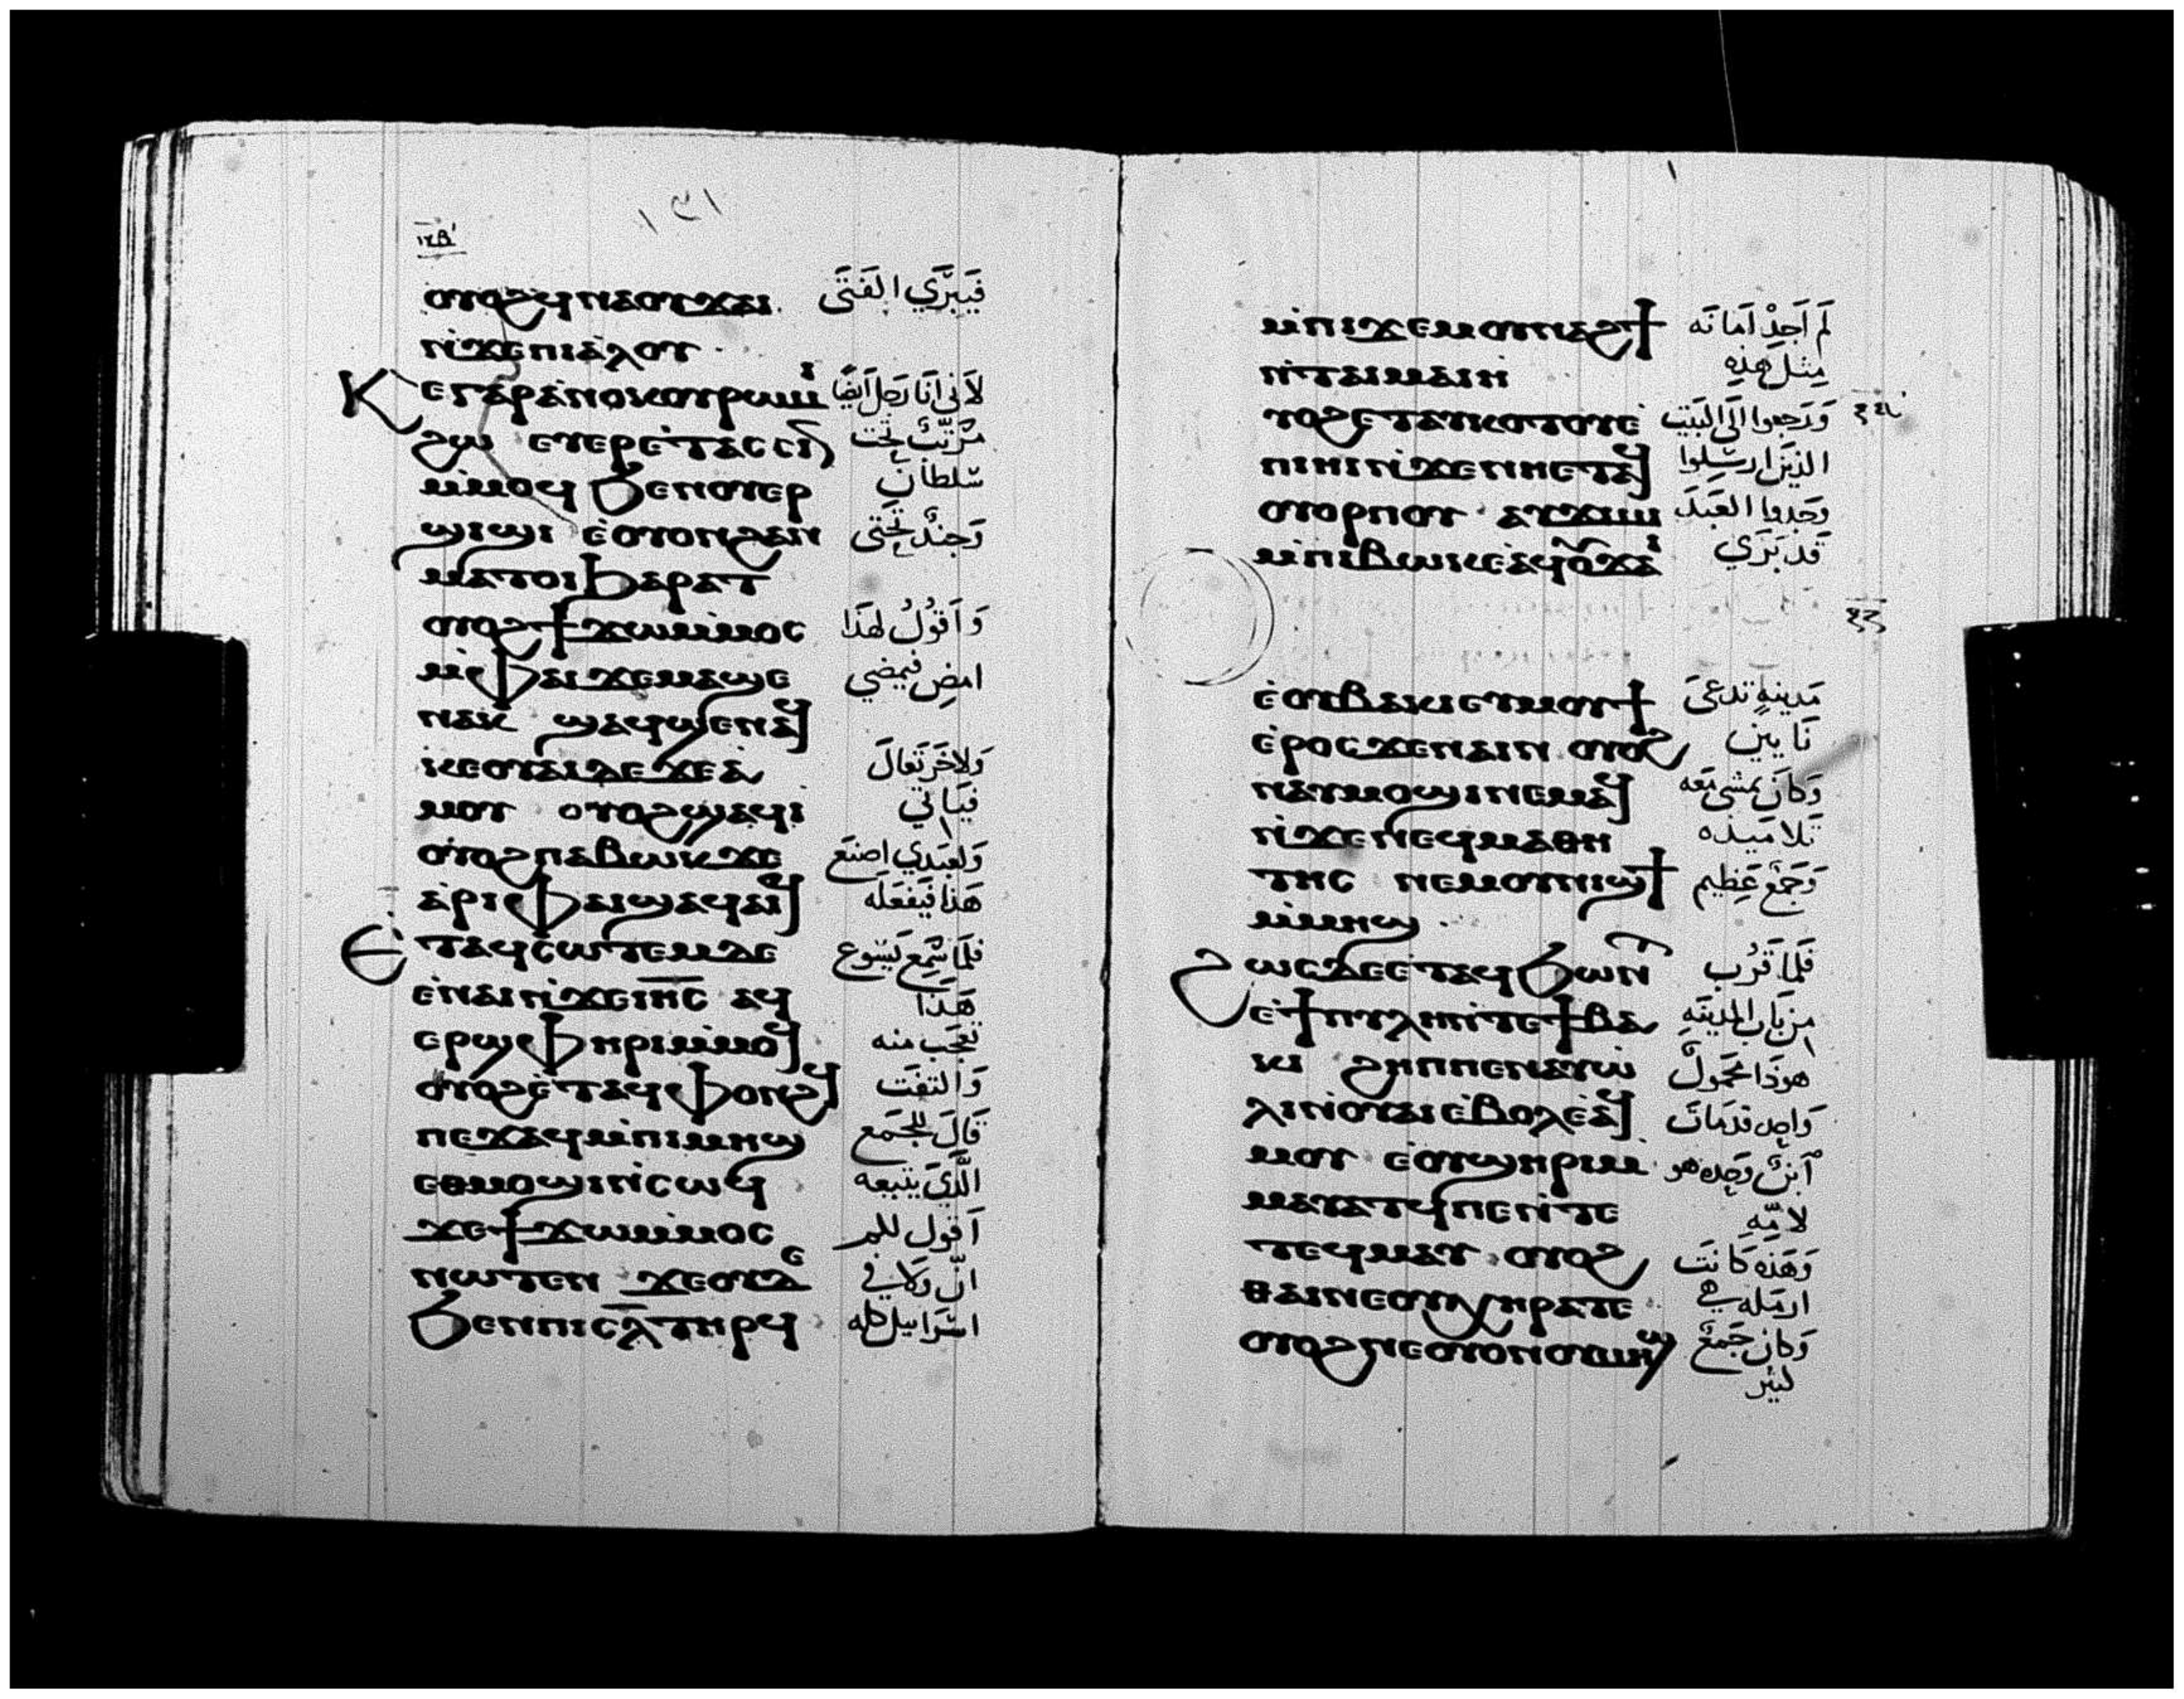 ١٣١
ⲟⲩⲟϩϥⲛⲁⲟⲩϫⲁⲓ فَيبرَّي الفَتَى
ⲛ̀ϫⲉⲡⲓⲁ̀ⲗⲟⲩ
ⲕⲉⲅⲁⲣⲁ̀ⲛⲟⲕⲟⲩⲣⲱⲙⲓ لاَني انَا رَجل اَيضًا
ϩⲱ ⲉⲩⲉⲣⲉ̀ⲧⲁⲥⲥⲓⲛ مرَتّبٌ تَحت
ⲙ̀ⲙⲟϥ ϧⲉⲛⲟⲩⲉⲣ سُلطانٍ
ϣⲓϣⲓ ⲉ̀ⲟⲩⲟⲛϩⲁⲛ وَجندٌ تحتى
ⲙⲁⲧⲟⲓ ϧⲁⲣⲁⲧ
ⲟⲩⲟϩϯϫⲱⲙ̀ⲙⲟⲥ وَاَقوُلُ لهَذَا
ⲙ̀ⲫⲁⲓϫⲉⲙⲁϣⲉ امضِ فيمضي
ⲛⲁⲕ ϣⲁϥϣⲉⲛⲁϥ
ⲕⲉⲟⲩⲁⲓⲇⲉϫⲉⲁ̀ وَلاخَر تَعالَ
ⲙⲟⲩ ⲟⲩⲟϩϣⲁϥⲓ̀ فيَاتي
ⲟⲩⲟϩⲡⲁⲃⲱⲕϫⲉ وَلعبَدي اصنَع
ⲁ̀ⲣⲓⲫⲁⲓϣⲁϥⲁⲓϥ هَذا فَيفعَلَه
ⲉ̀ⲧⲁϥⲥⲱⲧⲉⲙⲇⲉ فلَمَا سَمِع يَسُوع
ⲉⲛⲁⲓⲛ̀ϫⲉⲓⲏ̅ⲥ̅ ⲁϥ هَذَا
ⲉⲣϣⲫⲏⲣⲓⲙ̀ⲙⲟϥ تعجَب منه
ⲟⲩⲟϩⲉ̀ⲧⲁϥⲫⲟⲛϩϥ وَالتفَت
ⲡⲉϫⲁϥⲙ̀ⲡⲓⲙⲏϣ قَالَ للجَمع
ⲉⲑⲙⲟϣⲓⲛ̀ⲥⲱϥ الَّذيَ يَتبعه
ϫⲉϯϫⲱⲙ̀ⲙⲟⲥ اَقول للم
ⲛⲱⲧⲉⲛ ϫⲉⲟⲩⲇⲉ انّ وَلا في
ϧⲉⲛⲡⲓⲥ̅ⲗ̅ⲧⲏⲣϥ اسَرَاييل كله
ⲙ̀ⲡⲓϫⲉⲙⲟⲩⲛⲁϩϯ لَم اَجِدْ اَمانَه
ⲛ̀ⲧⲁⲓⲙⲁⲓⲏ مِثل هَذِه
ⲩⲟϩⲉⲧⲁⲩⲕⲟⲧⲟⲩⲉ̀ وَرَجعوا اليَ البَيت
ⲡⲓⲏⲓⲛ̀ϫⲉⲛⲏⲉⲧⲁⲩ الذينَ ارسِلوا
ⲟⲩⲟⲣⲡⲟⲩ ⲁⲩϫⲓⲙⲓ وَجَدوا العَبَدَ
ⲙ̀ⲡⲓⲃⲱⲕⲉ̀ⲁϥⲟⲩϫⲁⲓ قَد بَرَي
ⲉ̀ⲟⲩⲃⲁⲕⲓⲉⲩⲙⲟⲩϯ مَدينةٍ تدعىَ
ⲉ̀ⲣⲟⲥϫⲉⲛⲁⲓⲛ ⲟⲩⲟϩ نَايين
ⲛⲁⲩⲙⲟϣⲓⲛⲉⲙⲁϥ وَكانَ يمَشي مَعه
ⲛ̀ϫⲉⲛⲉϥⲙⲁⲑⲏ تلاميذه
ⲧⲏⲥ ⲛⲉⲙⲟⲩⲛⲓϣϯ وَجَمَعٌ عَظيم
ⲙ̀ⲙⲏϣ
ϩⲱⲥⲇⲉⲉ̀ⲧⲁϥϧⲱⲛⲧ فَلَمَا قَرُب
ⲉ̀ϯⲡⲩⲗⲏⲛ̀ⲧⲉϯⲃⲁ مِن بَاب المدينَةِ
ⲕⲓ ϩⲏⲡⲡⲉⲛⲁⲩⲱ هوذَا محَمولٌ
ⲗⲓⲛ̀ⲟⲩⲁⲓⲉ̀ⲃⲟⲗⲉ̀ⲁϥ وَاحِد قدمَاتَ
ⲙⲟⲩ ⲉ̀ⲟⲩϣⲏⲣⲓⲙ ابنٌ وَحِده هو
ⲙⲁⲩⲁⲧϥⲡⲉⲛ̀ⲧⲉ لامِّهِ
ⲧⲉϥⲙⲁⲩ ⲟⲩⲟϩ وَهَذه كَانتَ
ⲑⲁⲓⲛⲉⲟⲩⲭⲏⲣⲁⲧⲉ ارمَله
ⲟⲩⲟϩⲛⲉⲟⲩⲟⲛⲟⲩⲙⲏϣ وَكان جَمعٌ
كثير